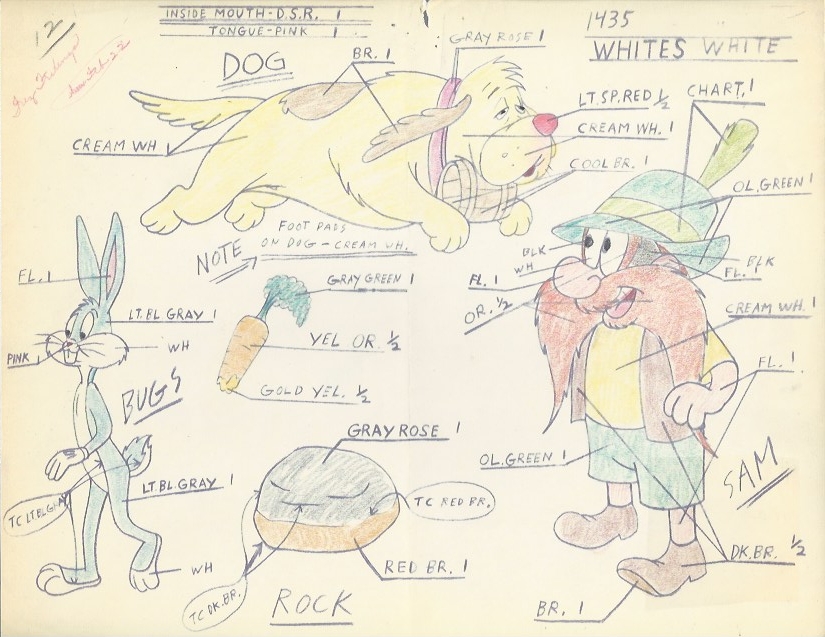 12
INSIDE MOUTH-D.S.R. 1
TONGUE-PINK 1
1435
WHITES WHITE
DOG
BR. 1
GRAY ROSE 1
LT.SP.RED ½
CHART, 1
CREAM WH 1
CREAM WH. 1
COOL BR. 1
OL.GREEN 1
NOTE
FOOT PADS
ON DOG - CREAM WH.
BLK
WH
FL. 1
BLK
FL. 1
OR. ½
FL. 1
GRAY GREEN 1
CREAM WH. 1
LT.BL GRAY 1
PINK 1
WH
YEL OR. ½
FL. 1
BUGS
GOLD YEL. ½
GRAY ROSE 1
OL.GREEN 1
SAM
LT.BL GRAY 1
TC LT.BL GRAY
TC RED BR.
WH
RED BR. 1
DK.BR. ½
TC DK.BR.
ROCK
BR. 1